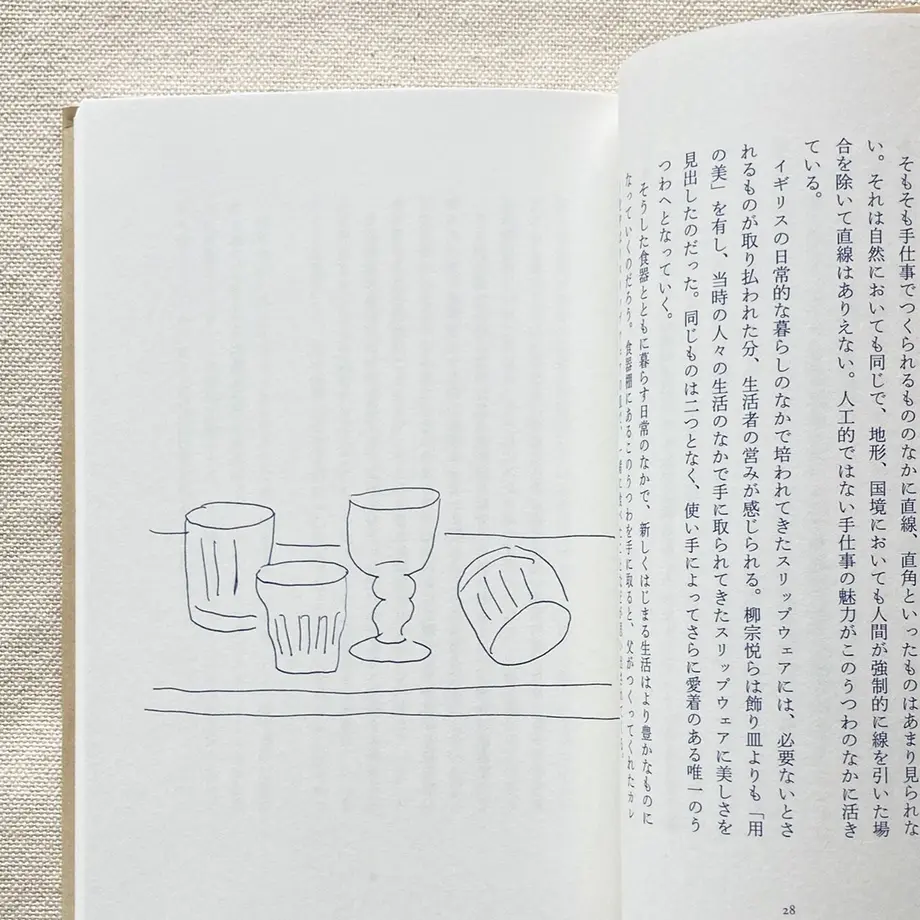 そもそも手仕事でつくられるもののなかに直線、直角といったものはあまり見られな
い。それは自然においても同じで、地形、国境においても人間が強制的に線を引いた場
合を除いて直線はありえない。人工的ではない手仕事の魅力がこのうつわのなかに活き
ている。
イギリスの日常的な暮らしのなかで培われてきたスリップウェアには、必要ないとさ
れるものが取り払われた分、生活者の営みが感じられる。柳宗悦らは飾り皿よりも「用
の美」を有し、当時の人々の生活のなかで手に取られてきたスリップウェアに美しさを
見出したのだった。同じものは二つとなく、使い手によってさらに愛着のある唯一のう
つわへとなっていく。
そうした食器とともに暮らす日常のなかで、新しくはじまる生活はより豊かなものに
なっていくのだろう。食器棚にあるこのうつわを手に取ると、父がつくってくれたカレ
28